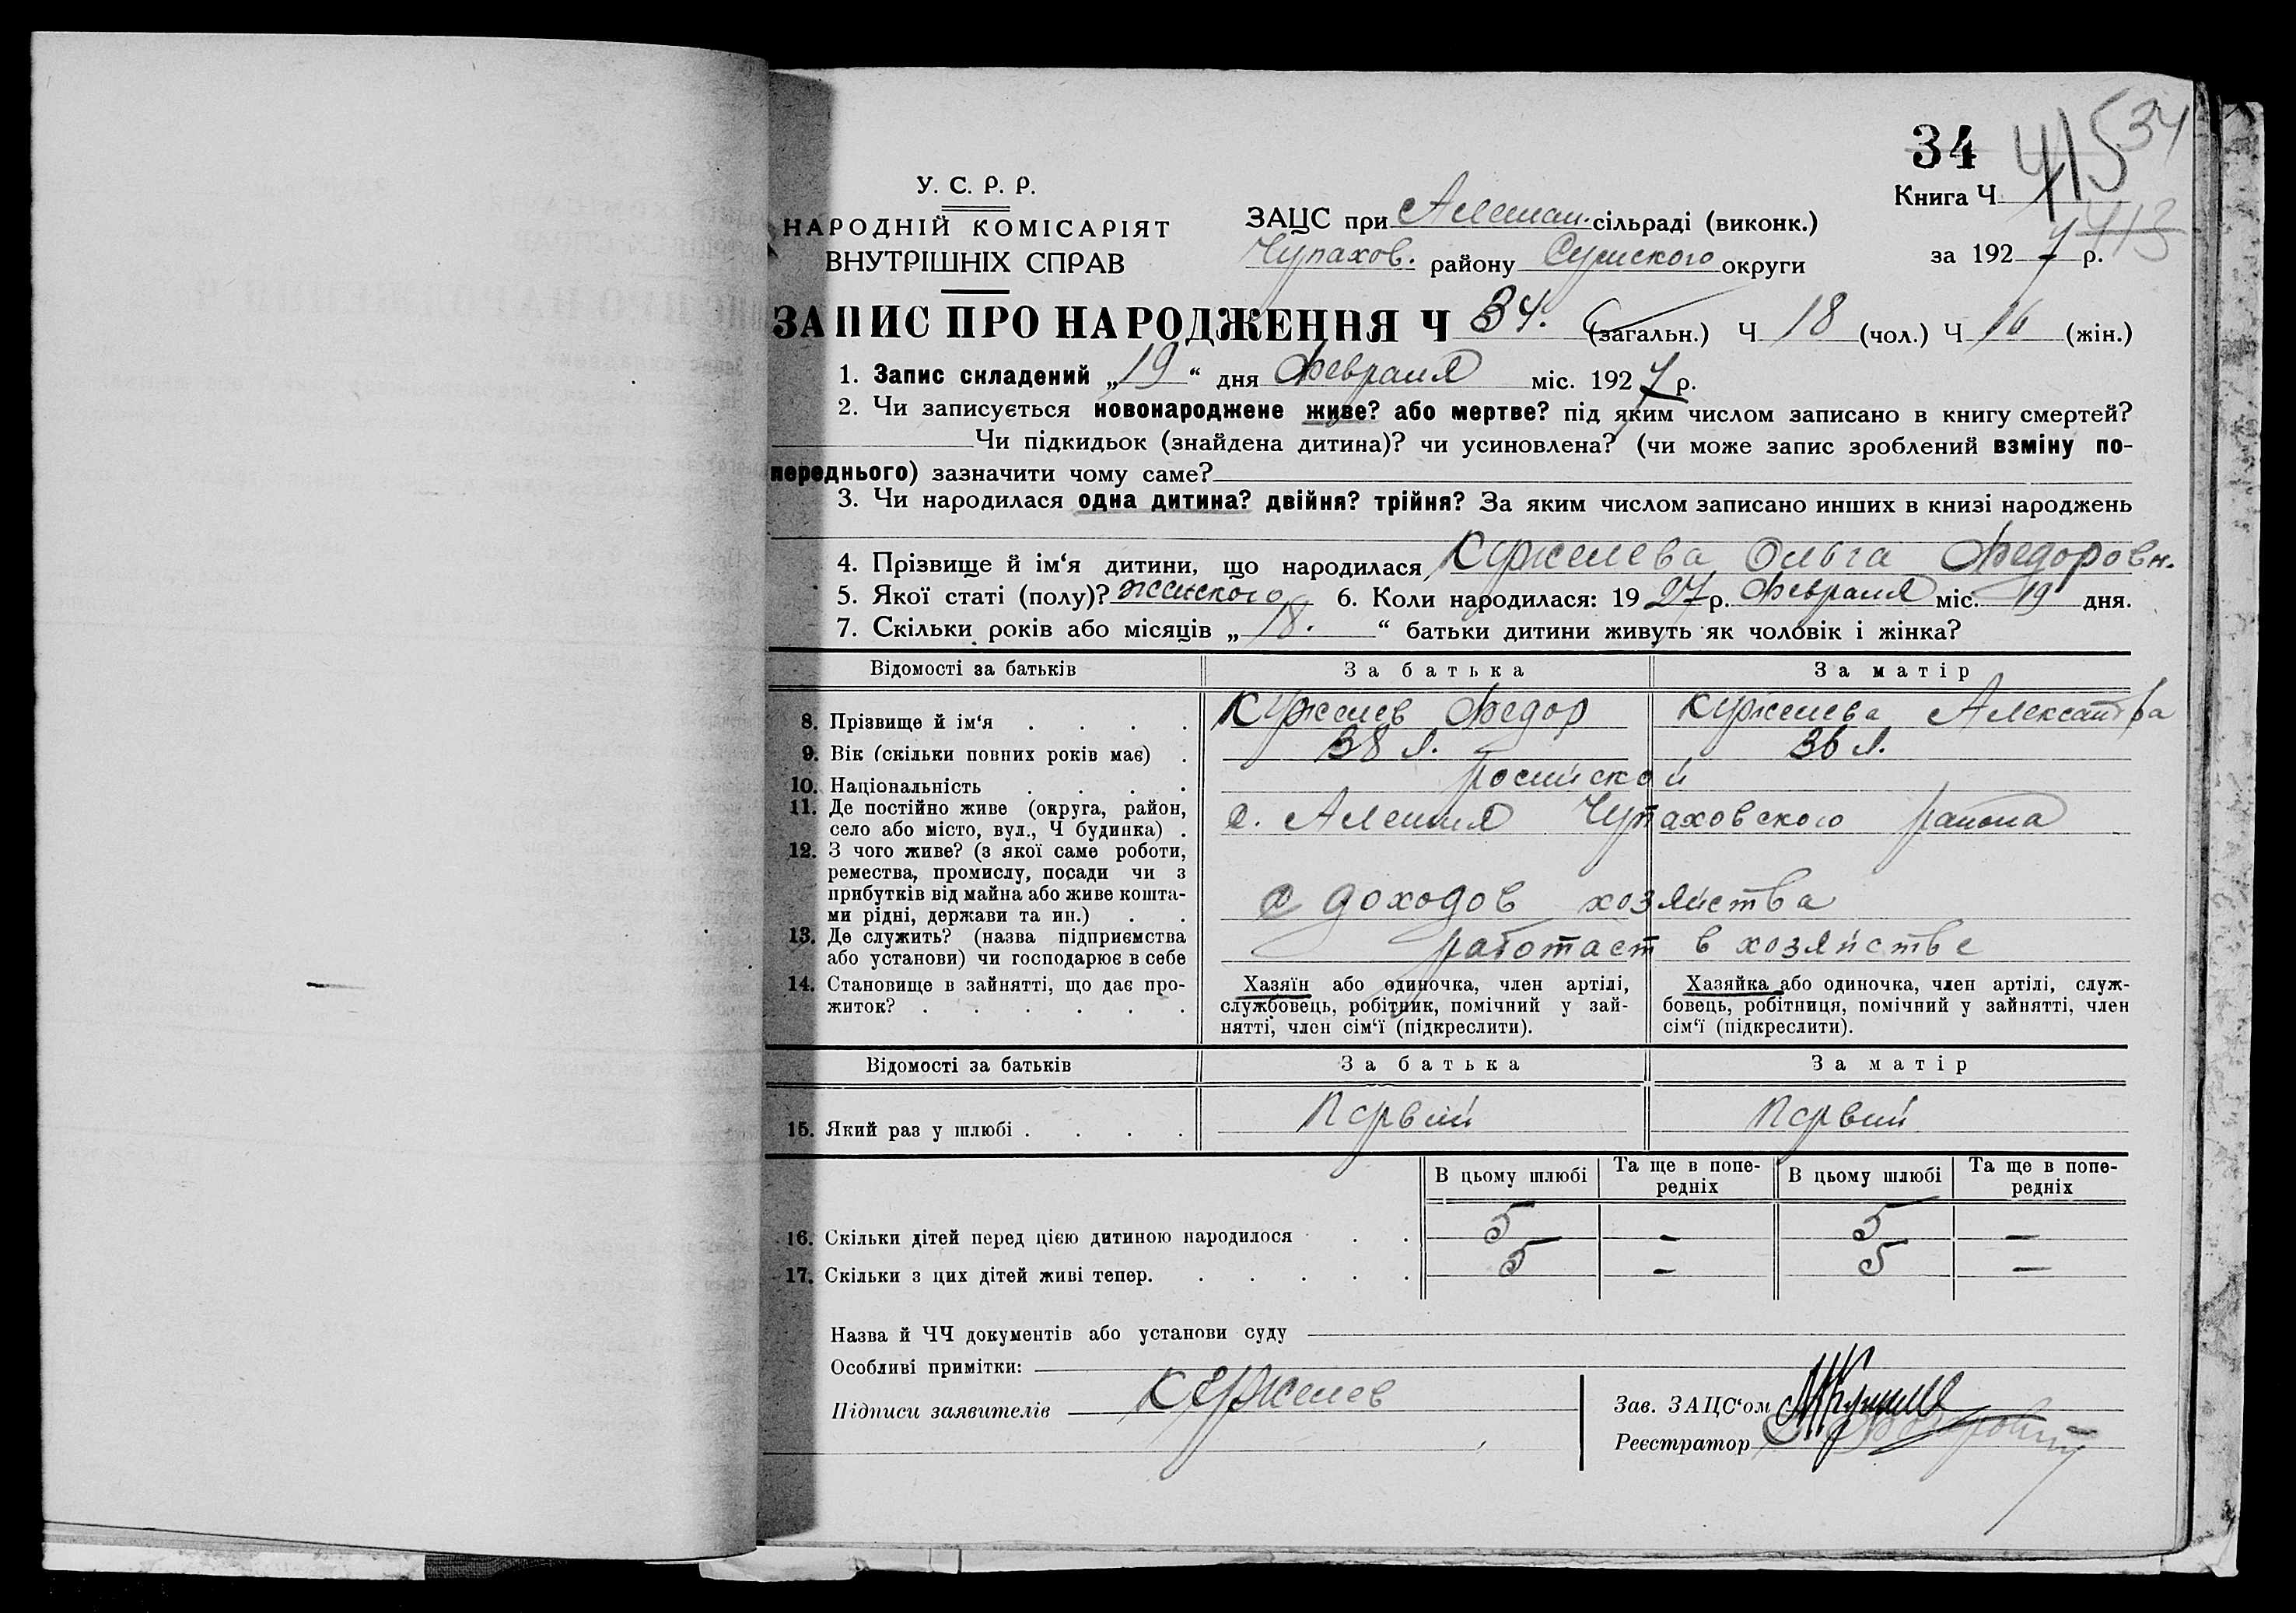 34 415 34
Книга Ч. 1
413
за 1927 р.
У. С. Р. Р.
НАРОДНІЙ КОМІСАРІЯТ
ВНУТРІШНІХ СПРАВ
ЗАЦС при Алешан. сільраді (виконк.)
Чупахов. району Сумского округи
ЗАПИС ПРО НАРОДЖЕННЯ Ч 34. (загальн.) Ч 18 (чол.) Ч 16 (жін.)
1. Запис складений „19“ дня Февраля міс. 1927 р.
2. Чи записується новонароджене живе? або мертве? під яким числом записано в книгу смертей?
Чи підкидьок (знайдена дитина)? чи усиновлена? (чи може запис зроблений взміну по-
переднього) зазначити чому саме?
3. Чи народилася одна дитина? двійня? трійня? За яким числом записано инших в книзі народжень
4. Прізвище й ім‘я дитини, що народилася Кужелева Ольга Федоровн.
5. Якої статі (полу)? женского 6. Коли народилася: 1927 р. Февраля міс. 19 дня.
7. Скільки років або місяців „18.“ батьки дитини живуть як чоловік і жінка?
Відомості за батьків За батька За матір
8. Прізвище й ім‘я . . . . Кужелев Федор Кужелева Александра
9. Вік (скільки повних років має) . 38 л. 36 л.
10. Національність . . . . росийской
11. Де постійно живе (округа, район,
село або місто, вул., Ч будинка) . с. Алешня Чупаховского района
12. З чого живе? (з якої саме роботи,
ремества, промислу, посади чи з
прибутків від майна або живе кошта-
ми рідні, держави та ин.) . . с доходов хозяйства
13. Де служить? (назва підприємства
або установи) чи господарює в себе работает в хозяйстве
14. Становище в зайнятті, що дає про-
житок? . . . . . .
Хазяїн або одиночка, член артілі,
службовець, робітник, помічний у зай-
нятті, член сім‘ї (підкреслити).
Хазяйка або одиночка, член артілі, служ-
бовець, робітниця, помічний у зайнятті, член
сім‘ї (підкреслити).
Відомості за батьків За батька За матір
15. Який раз у шлюбі . . . . Первий Первий
В цьому шлюбі Та ще в попе-
редніх В цьому шлюбі Та ще в попе-
редніх
16. Скільки дітей перед цією дитиною народилося . . 5 – 5 –
17. Скільки з цих дітей живі тепер. . . . . . 5 – 5 –
Назва й ЧЧ документів або установи суду
Особливі примітки:
Підписи заявителів Кужелев
Зав. ЗАЦС‘ом
Реєстратор